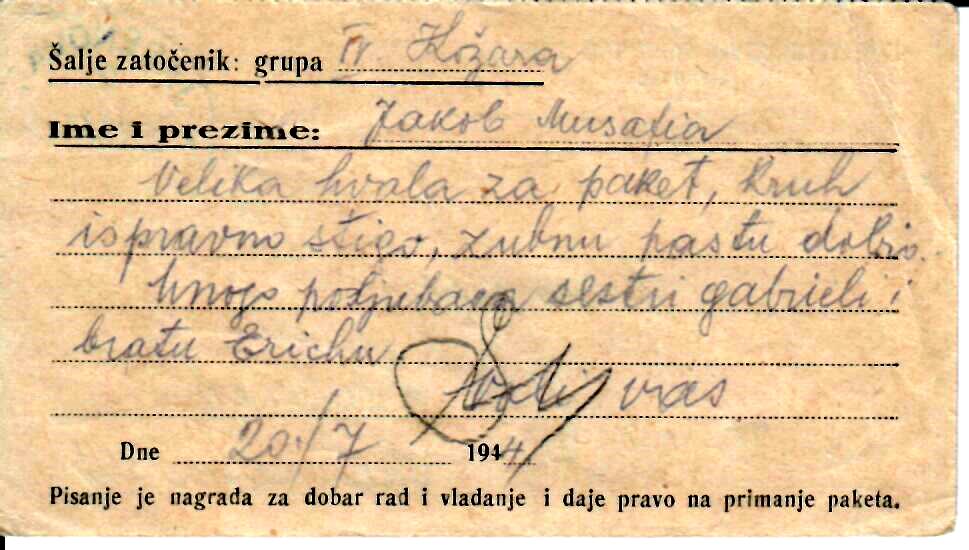 Šalje zatočenik: grupa IV Kožara
Ime i prezime: Jakob Musafia
Velika hvala za paket, Kruh
ispravno stigo, zubnu pastu dobio.
Mnogo poljubaca sestri gabrieli i
bratu Erichu
vas
Dne 20/7 1944
Pisanje je nagrada za dobar rad i vladanje i daje pravo na primanje paketa.